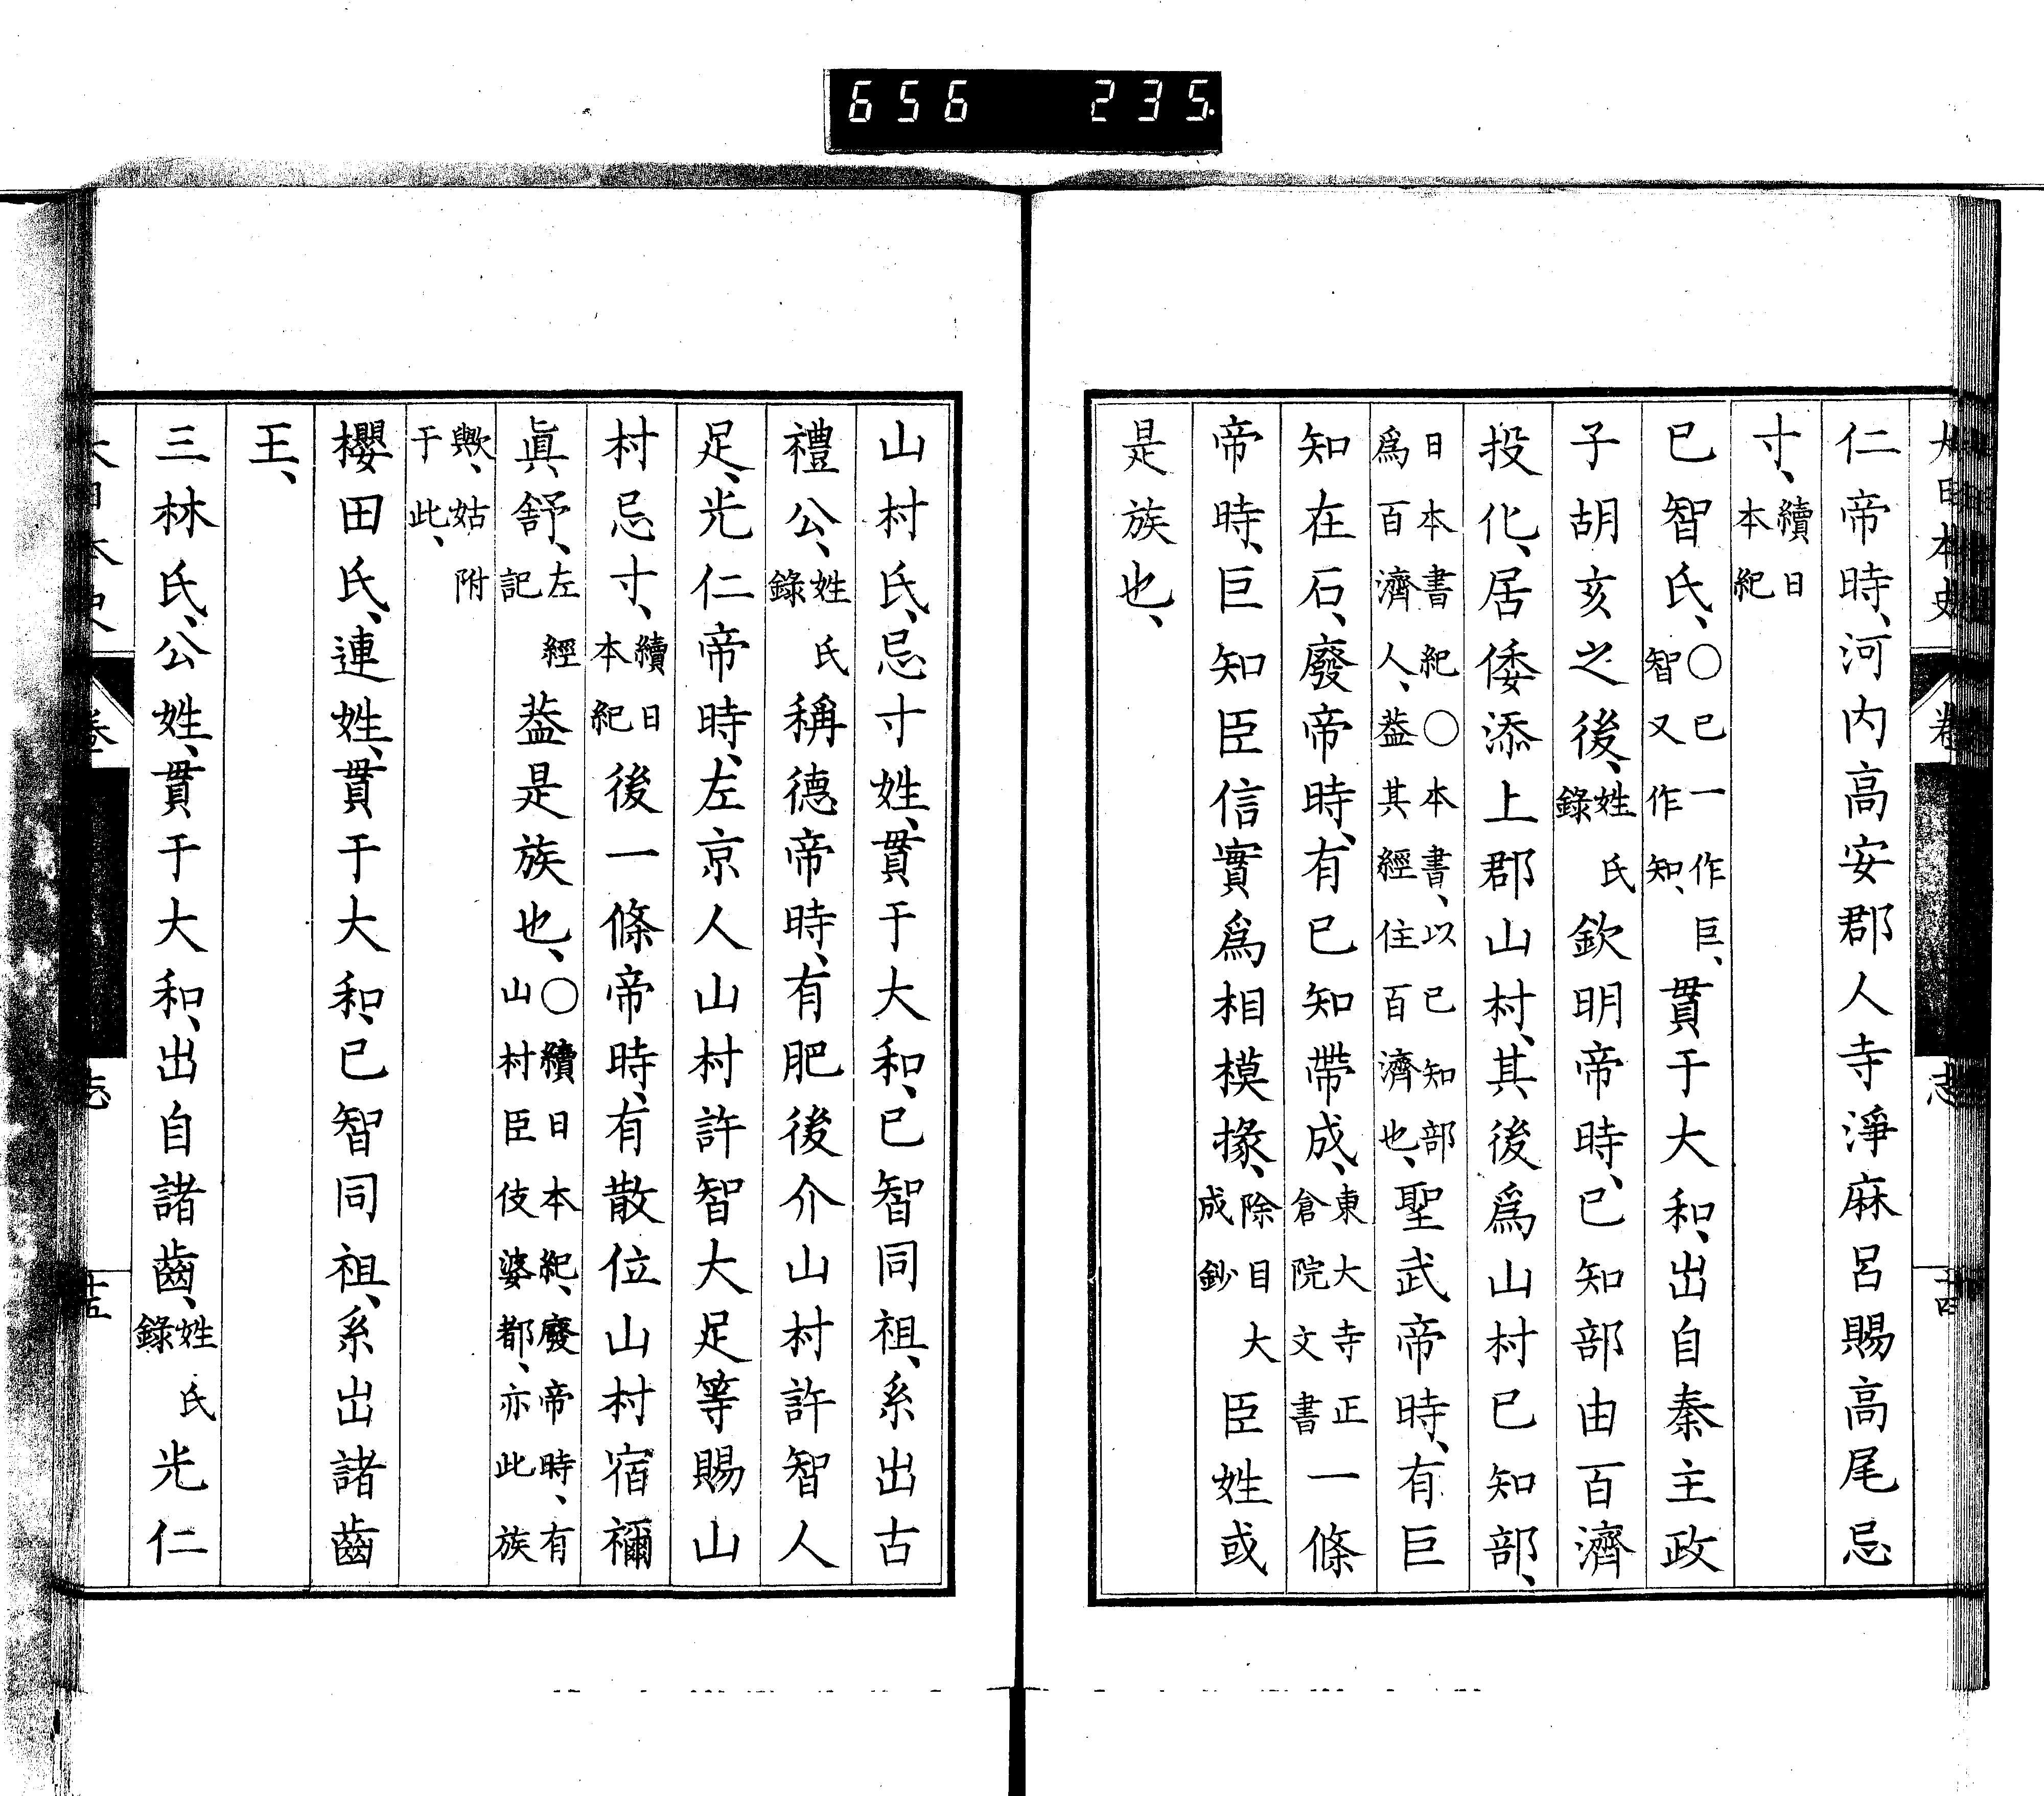 656 235.
大日本史 卷 志 十四
仁帝時、河内高安郡人寺淨麻呂賜高尾忌
寸、續日本紀
已智氏、○已一作巨、智又作知、貫于大和、出自秦主政
子胡亥之後、姓氏錄欽明帝時、已知部由百濟
投化、居倭添上郡山村、其後爲山村已知部、
日本書紀○本書、以已知部爲百濟人、葢其經住百濟也、聖武帝時、有巨
知在石、廢帝時、有已知帶成、東大寺正倉院文書一條
帝時、巨知臣信實爲相模掾、除目大成鈔臣姓或
是族也、
山村氏、忌寸姓、貫于大和、已智同祖、系出古
禮公、姓氏錄稱德帝時、有肥後介山村許智人
足、光仁帝時、左京人山村許智大足等賜山
村忌寸、續日本紀後一條帝時、有散位山村宿禰
眞舒、左經記葢是族也、○續日本紀、廢帝時、有山村臣伎婆都、亦此族
歟、姑附于此、
櫻田氏、連姓、貫于大和、已智同祖、系出諸齒
王、
三林氏、公姓、貫于大和、出自諸齒、姓氏錄光仁
大日本史 卷 志 十五